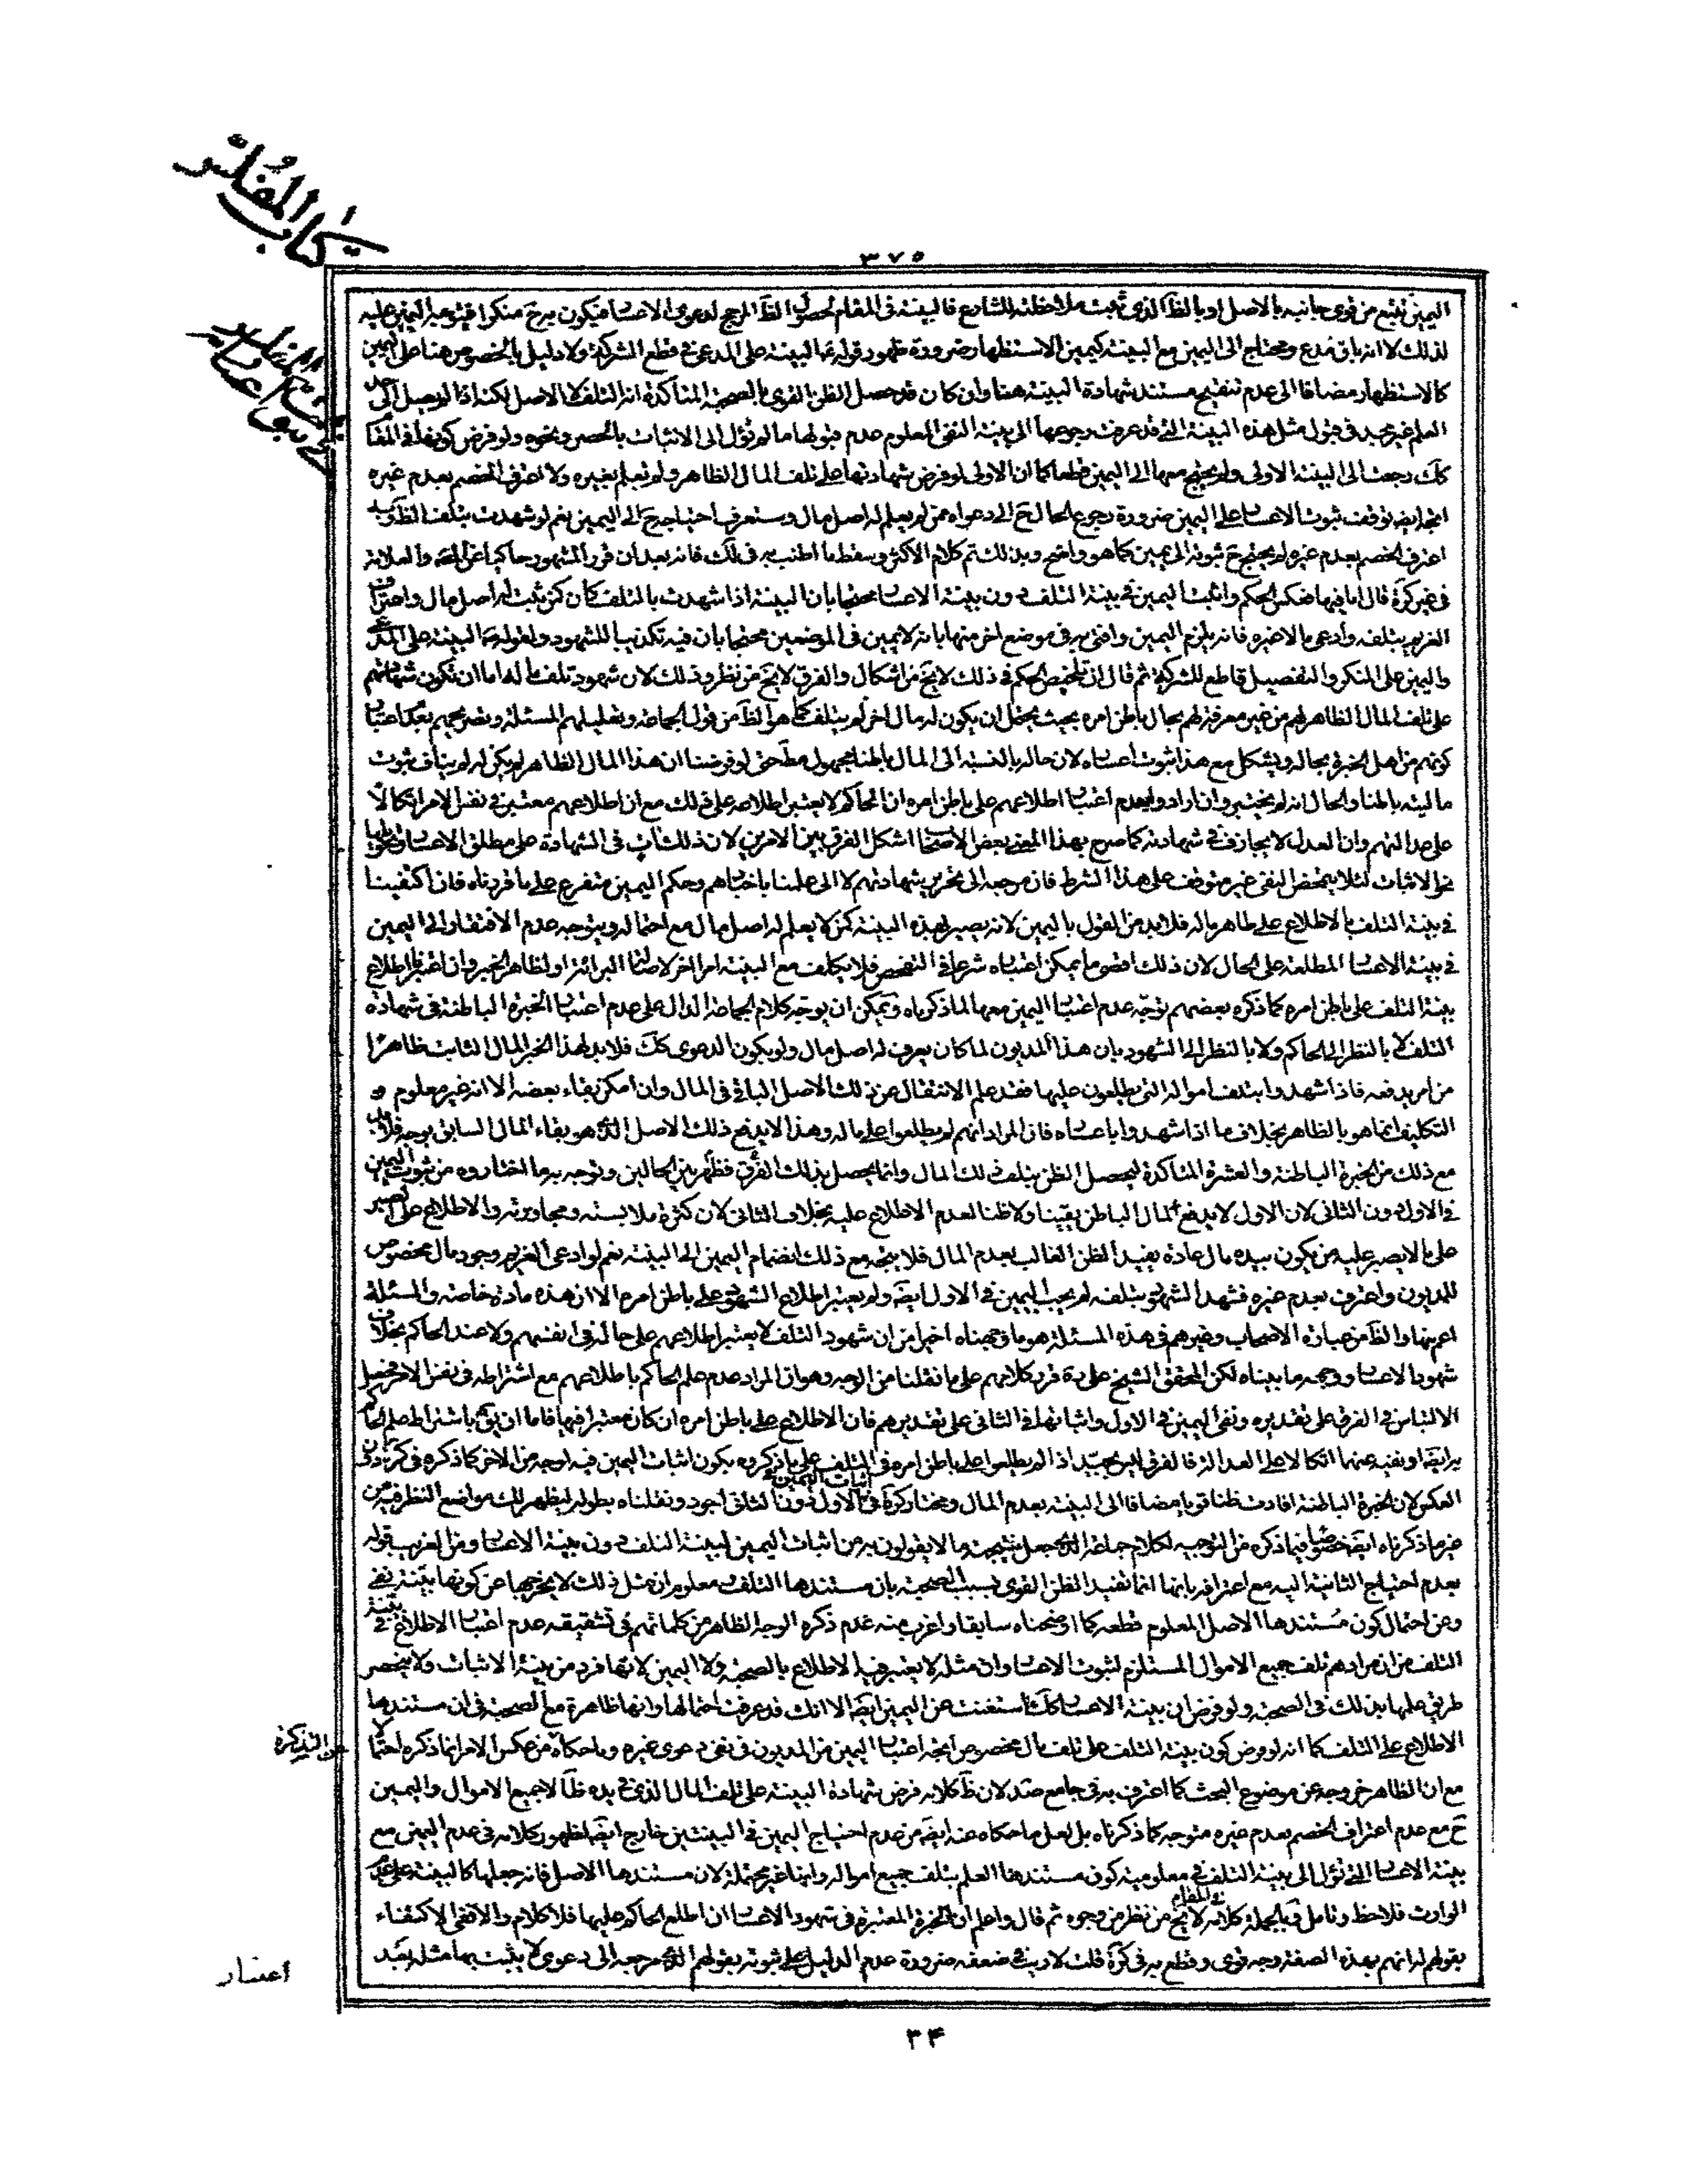 كتاب المفلس
٣٧٥
اليمين تتبع من قوى جانبه بالاصل او بالظ الذى ثبت ملاحظته للشارع فالبينة فى المقام لحصول الظ المرجح لدعوى الاعسا فيكون برح منكرا فيتوجه اليمين عليه
لذلك لا انه باق مدع ويحتاج الى اليمين مع البينة كيمين الاستظهار ضرورة ظهور قوله ع البينة على المدعى فى قطع الشركة ولا دليل بالخصوص هنا على اليمين
كالاستظهار مضافا الى عدم تنقيح مستند شهادة البينة هنا وان كان قد حصل الظن القوى بالصحبة المتأكدة انه التلف لا الاصل لكنه اذا لم يصل الى حد
العلم غير مجيد فى قبول مثل هذه البينة التى قد عرفت رجوعها الى بينة النفى المعلوم عدم قبولها ما لم تؤل الى الاثبات بالحصر ونحوه ولو فرض كونها فى المقا
كك رجعت الى البينة الاولى ولم يحتج معها الى اليمين قطعا كما ان الاولى لو فرض شهادتها على تلف المال الظاهر ولم تعلم بغيره ولا اعترف الخصم بعدم غيره
اتجه ايضا توقف ثبوت الاعسا على اليمين ضرورة رجوع الحال ح الى دعواه ممن لم يعلم له اصل مال وستعرف احتياجه ح الى اليمين نعم لو شهدت بتلف الظ وقد
اعترف الخصم بعدم غيره لم يحتج ح ثبوته الى يمين كما هو واضح وبذلك تم كلام الاكثر وسقط ما اطنب به فى لك فانه بعد ان قرر المشهور حاكيا عن المص والعلامة
فى غير كرة قال اما فيها فعكس الحكم واثبت اليمين فى بينة التلف دون بينة الاعسا محتجا بان البينة اذا شهدت بالتلف كان كمن ثبت له اصل مال واعترف
الغريم بتلفه وادعى مالا غيره فانه يلزم اليمين وافتى به فى موضع اخر منها بانه لا يمين فى الموضعين محتجا بان فيه تكذيبا للشهود ولقوله ع البينة على المدعى
واليمين على المنكر والتفصيل قاطع للشركة ثم قال ان تلخيص الحكم فى ذلك لا يخ من اشكال والفرق لا يخ من نظر وذلك لان شهود تلف ماله اما ان تكون شهادتهم
على تلف المال الظاهر لهم من غير معرفتهم بحال باطن امره بحيث يحتمل ان يكون له مال اخر لم يتلف كما هو الظ من قول الجماعة وتعليلهم المسئلة وتصريحهم بعدم اعتبار
كونهم من اهل الخبرة بحاله ويشكل مع هذا ثبوت اعساره لان حاله بالنسبة الى المال باطنا مجهول مط حتى لو فرضنا ان هذا المال الظاهر لم يكن له لم يناف ثبوت
ماليته باطنا والحال انه لم يختبر وان ارادوا بعدم اعتبار اطلاعهم على باطن امره ان الحاكم لا يعتبر اطلاعه على ذلك مع ان اطلاعهم معتبر فى نفس الامر اتكالا
على عدالتهم وان العدل لا يجازف فى شهادته كما صرح بهذا المعنى بعض الاصحا اشكل الفرق بين الامرين لان ذلك ثابت فى الشهادة على مطلق الاعسا
نحو الاثبات لئلا يتمحض النفى غير متوقف على هذا الشرط فان مرجعه الى تحرير شهادتهم لا الى علمنا باختبارهم وحكم اليمين متفرع على ما قررناه فان اكتفينا
فى بينة التلف بالاطلاع على ظاهر ماله فلا بد من القول باليمين لانه يصير بهذه البينة كمن لا يعلم له اصل مال مع احتماله ويتوجه عدم الافتقار الى اليمين
فى بينة الاعسا المطلعة على الحال لان ذلك اقصى ما يمكن اعتباره شرعا فى التفحص فلا يكلف مع البينة امر اخر لاصالة البرائة او لظاهر الخبر وان اعتبرنا اطلاع
بينة التلف على باطن امره كما ذكره بعضهم توجه عدم اعتبار اليمين معها لما ذكرناه ويمكن ان يوجه كلام الجماعة الدال على عدم اعتبار الخبرة الباطنة فى شهادة
التلف لا بالنظر الى الحاكم ولا بالنظر الى الشهود بان هذا المديون لما كان يعرف له اصل مال ولو بكون الدعوى كك فلا بد لهذا الخبر المال الثابت ظاهرا
من امر يدفعه فاذا شهدوا بتلف امواله التى يطلعون عليها فقد علم الانتقال عن ذلك الاصل الباقى فى المال وان امكن بقاء بعضه الا انه غير معلوم و
التكليف انما هو بالظاهر بخلاف ما اذا شهدوا باعساره فان المراد انهم لم يطلعوا على ماله وهذا لا يدفع ذلك الاصل الذى هو بقاء المال السابق بوجه فلا بد
مع ذلك من الخبرة الباطنة والعشرة المتاكدة ليحصل الظن بتلف ذلك المال وانما يحصل بذلك الفرق فظهر بين الحالين وتوجه به ما اختاروه من ثبوت اليمين
فى الاول دون الثانى لان الاول لا يدفع المال الباطن يقينا ولا ظنا لعدم الاطلاع عليه بخلاف الثانى لان كثرة ملابسته ومجاورته والاطلاع على الصبر
على ما لا يصبر عليه من يكون بيده مال عادة يفيد الظن الغالب بعدم المال فلا يتجه مع ذلك انضمام اليمين الى البينة نعم لو ادعى الغريم وجود مال مخصوص
للمديون واعترف بعدم غيره فشهد الشهود بتلفه لم يجب اليمين فى الاول ايضا ولم يعتبر اطلاع الشهود على باطن امره الا ان هذه مادة خاصة والمسئلة
اعم منها والظ من عبارة الاصحاب وغيرهم فى هذه المسئلة هو ما وجهناه اخيرا من ان شهود التلف لا يعتبر اطلاعهم على حاله فى انفسهم ولا عند الحاكم بخلاف
شهود الاعسا ووجهه ما بيناه لكن المحقق الشيخ على ره قرر كلامهم على ما نقلنا من الوجه وهو ان المراد عدم علم الحاكم باطلاعهم مع اشتراطه فى نفس الامر فحصل
الالتباس فى الفرق على تقديره ونفى اليمين فى الاول واثباتها فى الثانى على تقديرهم فان الاطلاع على باطن امره ان كان معتبرا فيها فاما ان يق باشتراط علم الحاكم
به ايضا او نفيه عنهما اتكالا على العدالة فالفرق ليس بجيد اذ لم يطلعوا على باطن امره فى التلف على ما ذكروه يكون اثبات اليمين فيه اوجه من الاخر كما ذكره فى كرة
العكس لان الخبرة الباطنة افادت ظنا قويا مضافا الى البينة بعدم المال ومختار كرة فى اثبات اليمين فى الاول دون الثانى اجود ونقلناه بطوله ليظهر لك مواضع النظر فيه من
غير ما ذكرناه ايضا خصوصا فيما ذكره من التوجيه لكلام جماعة الذى جعل نتيجته ما لا يقولون به من اثبات اليمين لبينة التلف دون بينة الاعسا ومن الغريب قوله
بعدم احتياج الثانية اليه مع اعترافه بانها انما تفيد الظن القوى بسبب الصحبة بان مستندها التلف معلوم ان مثل ذلك لا يخرجها عن كونها بينة نفى
وعن احتمال كون مستندها الاصل المعلوم قطعه كما اوضحناه سابقا واغرب منه عدم ذكره الوجه الظاهر من كلماتهم فى تشقيقه عدم اعتبار الاطلاع فى بينة
التلف من ان مرادهم تلف جميع الاموال المستلزم لثبوت الاعسا وان مثله لا يعتبر فيه الاطلاع بالصحبة ولا اليمين لانها فرد من بينة الاثبات ولا ينحصر
طريق علمها بذلك فى الصحبة ولو فرض ان بينة الاعسا كك استغنت عن اليمين ايضا الا انك قد عرفت احتمالها وانها ظاهرة مع الصحبة فى ان مستندها
الاطلاع على التلف كما انه لو فرض كون بينة التلف على تلف مال مخصوص اتجه اعتبار اليمين من المديون فى نفى دعوى غيره وما حكاه من عكس الامر انما ذكره احتمالا
عن التذكرة
مع ان الظاهر خروجه عن موضوع البحث كما اعترف به فى جامع صد لان ظ كلامه فرض شهادة البينة على تلف المال الذى فى يده ظا لا جميع الاموال واليمين
ح مع عدم اعتراف الخصم بعدم غيره متوجه كما ذكرناه بل لعل ما حكاه عنه ايضا من عدم احتياج اليمين فى البينتين خارج ايضا لظهور كلامه فى عدم اليمين مع
بينة الاعسا التى تؤل الى بينة التلف فى معلومية كون مستندها العلم بتلف جميع امواله وانها غير محتملة لان مستندها الاصل فانه جعلها كالبينة على عدم
الوارث فلاحظ وتامل وبالجملة كلامه فى المقام لا يخ من نظر من وجوه ثم قال واعلم ان الخبرة المعتبرة فى شهود الاعسا ان اطلع الحاكم عليها فلا كلام والا ففى الاكتفاء
بقولهم انهم بهذه الصفة وجه قوى وقطع به فى كرة قلت لا ريب فى ضعفه ضرورة عدم الدليل على ثبوته بقولهم الذى مرجعه الى دعوى لا يثبت بها مثله بعد
اعسار
٣٤